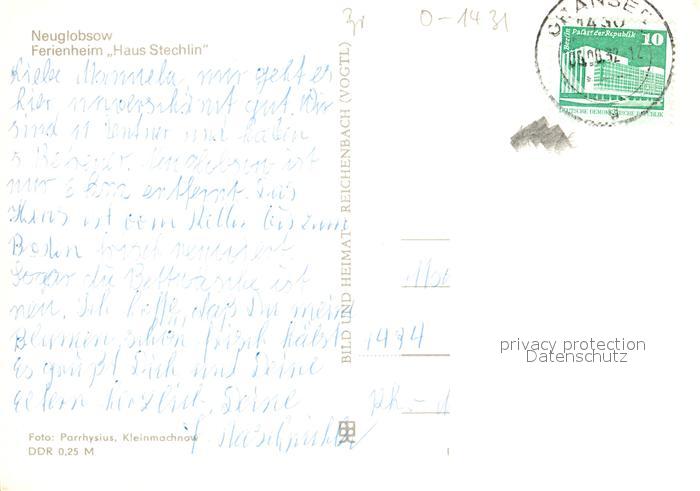 Neuglobsow
Ferienheim „Haus Stechlin"
Zr
O-1431
GRANSEE
1430
Berlin Palast der Republik
10
DEUTSCHE DEMOKRATISCHE REPUBLIK
Liebe Manuela, mir geht es
hier unverschämt gut. Wir
sind
und haben
Neuglobsow ist
nur 6 km entfernt. Das
Haus ist vom Keller bis zum
Boden frisch renoviert.
Sogar die Bettwäsche ist
neu. Ich hoffe, daß Du meine
Blumen schön frisch hälst.
Es grüßt Dich und Deine
Eltern herzlich Deine
BILD UND HEIMAT REICHENBACH (VOGTL)
1434
privacy protection
Datenschutz
Foto: Parrhysius, Kleinmachnow
DDR 0,25 M